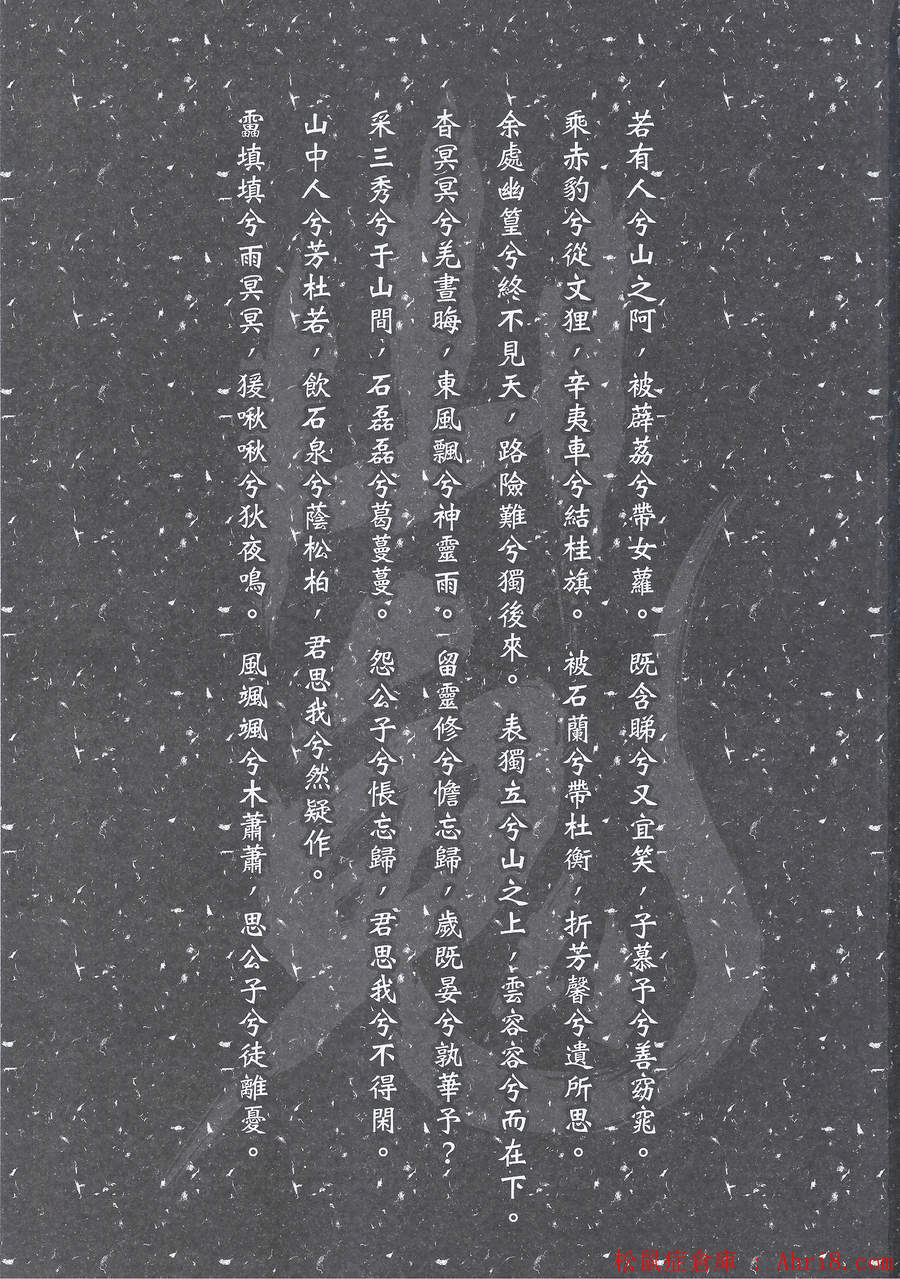 若有人兮山之阿，被薜荔兮帶女蘿。既含睇兮又宜笑，子慕予兮善窈窕。
乘赤豹兮從文狸，辛夷車兮結桂旗。被石蘭兮帶杜衡，折芳馨兮遺所思。
余處幽篁兮終不見天，路險難兮獨後來。表獨立兮山之上，雲容容兮而在下。
杳冥冥兮羌晝晦，東風飄兮神靈雨。留靈修兮憺忘歸，歲既晏兮孰華予？
采三秀兮于山間，石磊磊兮葛蔓蔓。怨公子兮悵忘歸，君思我兮不得閑。
山中人兮芳杜若，飲石泉兮蔭松柏，君思我兮然疑作。
靁填填兮雨冥冥，猨啾啾兮狖夜鳴。風颯颯兮木蕭蕭，思公子兮徒離憂。
山鬼
松鼠症倉庫：Ahri8.com